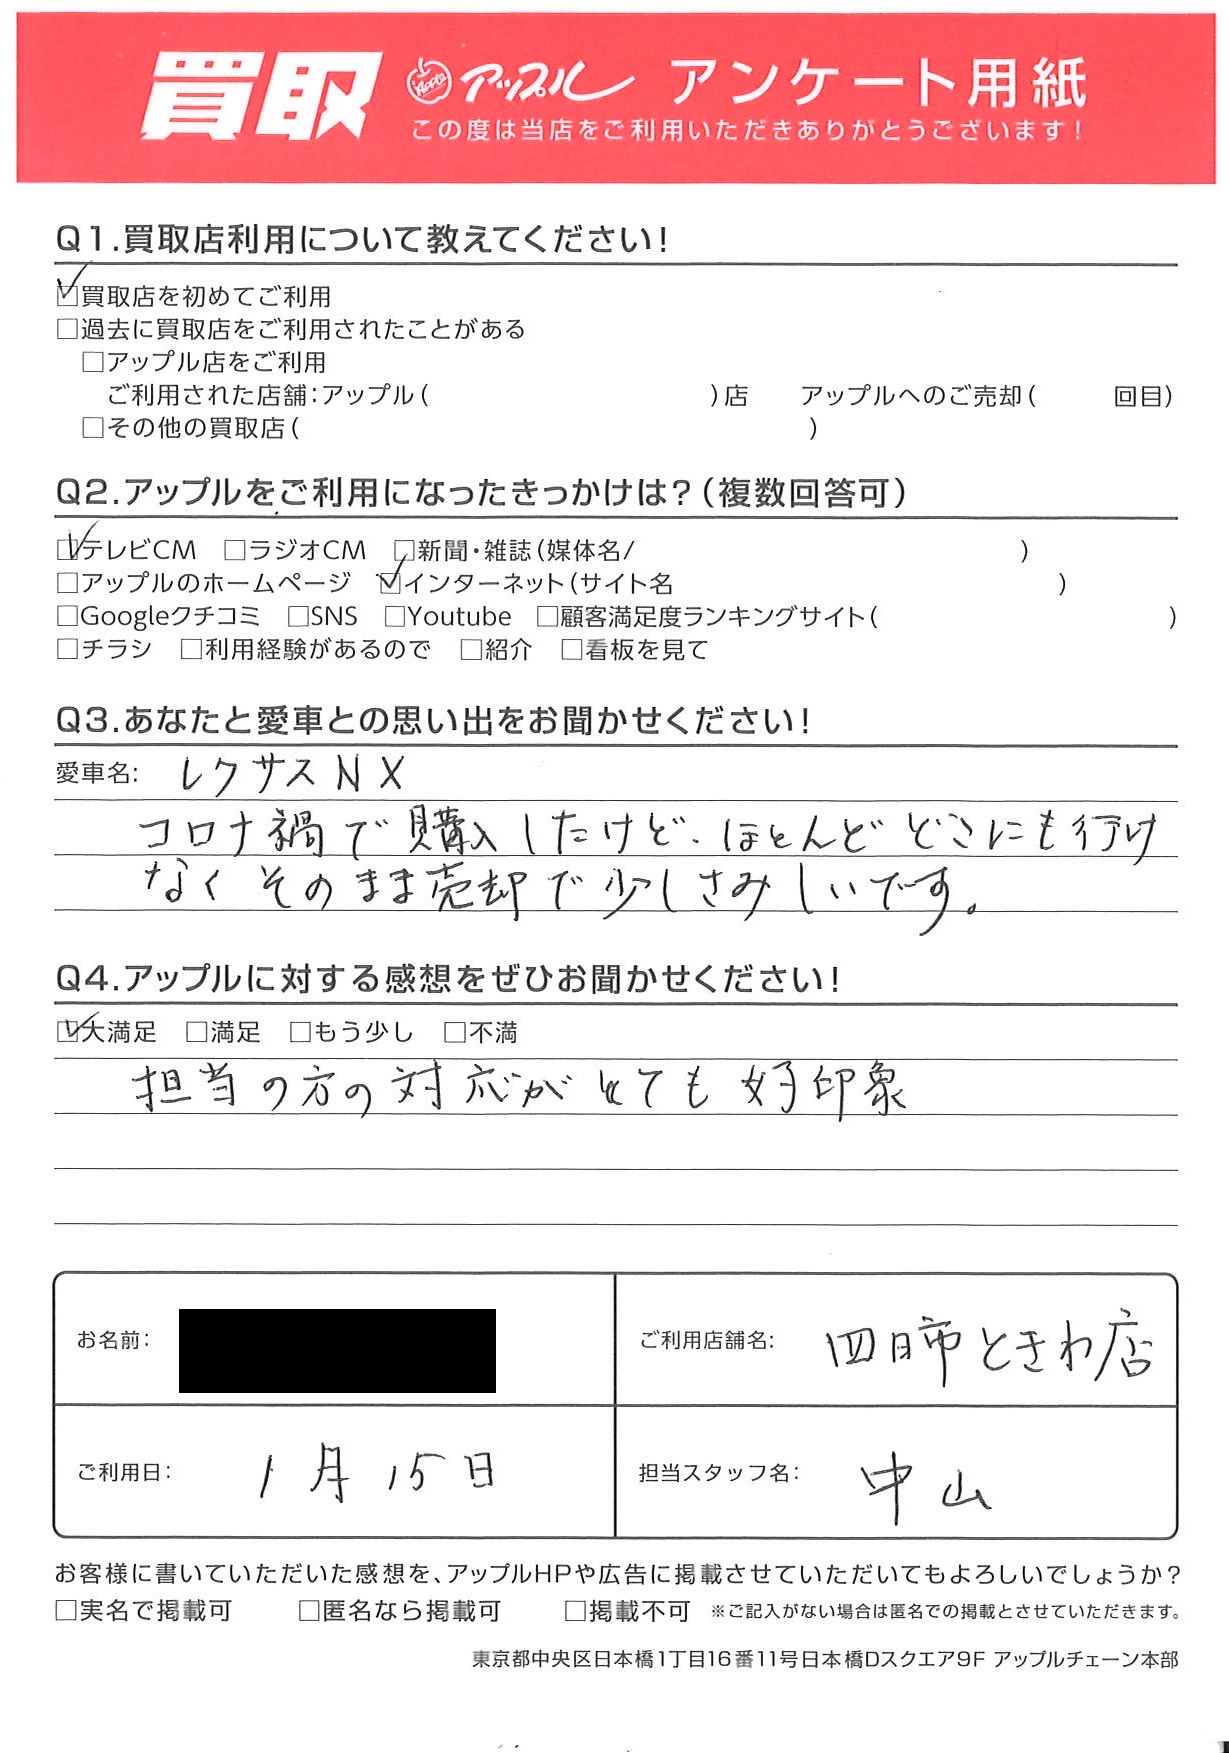 買取 Apple アップル アンケート用紙
この度は当店をご利用いただきありがとうございます!
Q1.買取店利用について教えてください!
☑買取店を初めてご利用
□過去に買取店をご利用されたことがある
□アップル店をご利用
ご利用された店舗:アップル( )店 アップルへのご売却( 回目)
□その他の買取店( )
Q2.アップルをご利用になったきっかけは?(複数回答可)
☑テレビCM □ラジオCM □新聞・雑誌(媒体名/ )
□アップルのホームページ ☑インターネット(サイト名 )
□Googleクチコミ □SNS □Youtube □顧客満足度ランキングサイト( )
□チラシ □利用経験があるので □紹介 □看板を見て
Q3.あなたと愛車との思い出をお聞かせください!
愛車名: レクサスNX
コロナ禍で購入したけど、ほとんどどこにも行け
なくそのまま売却で少しさみしいです。
Q4.アップルに対する感想をぜひお聞かせください!
☑大満足 □満足 □もう少し □不満
担当の方の対応がとても好印象
お名前: ご利用店舗名: 四日市ときわ店
ご利用日: 1月15日 担当スタッフ名: 中山
お客様に書いていただいた感想を、アップルHPや広告に掲載させていただいてもよろしいでしょうか?
□実名で掲載可 □匿名なら掲載可 □掲載不可 ※ご記入がない場合は匿名での掲載とさせていただきます。
東京都中央区日本橋1丁目16番11号日本橋Dスクエア9F アップルチェーン本部